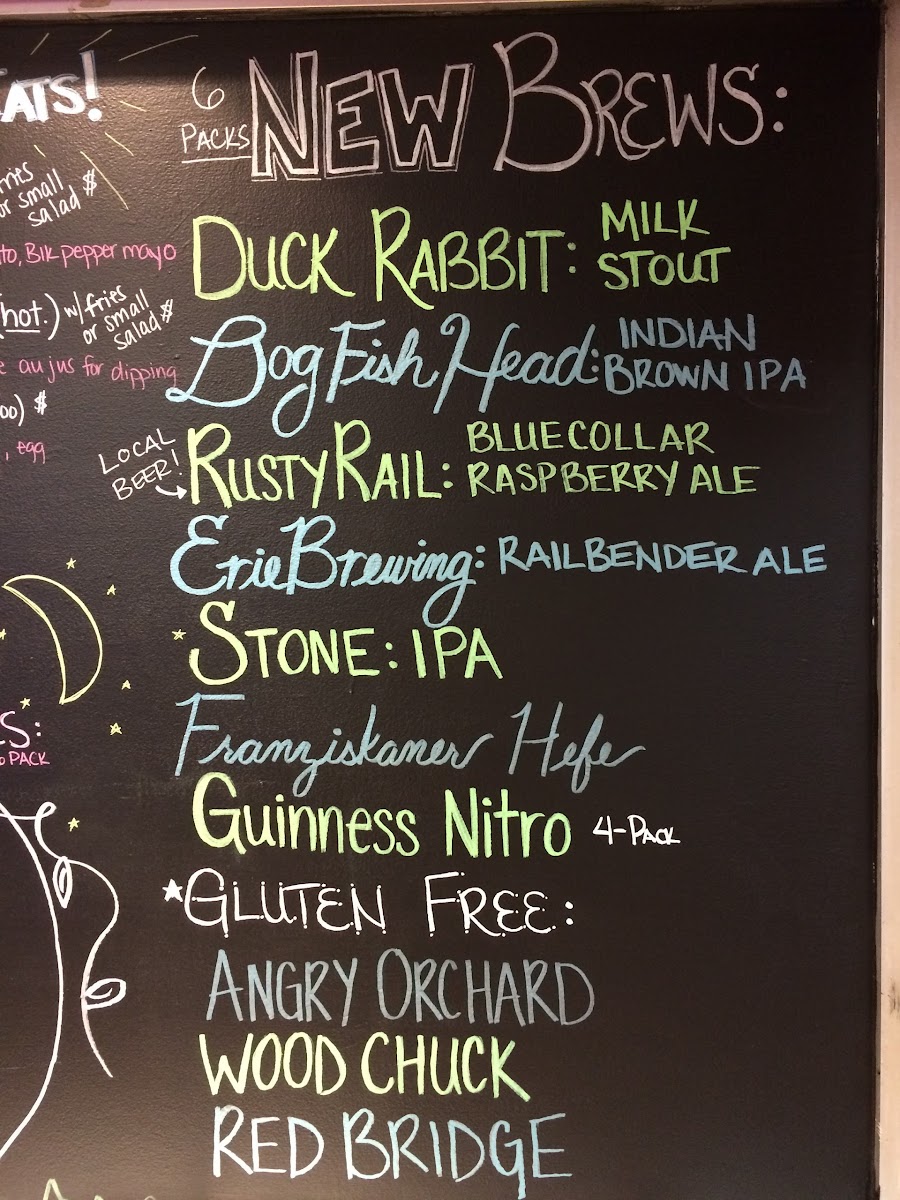 EATS!
fries
or small
salad $
to, Blk pepper mayo
(hot.) w/ fries
or small
salad $
e au jus for dipping
oo) $
, egg
S:
6 PACK
6
PACKS
NEW BREWS:
DUCK RABBIT: MILK
STOUT
Dog Fish Head: INDIAN
BROWN IPA
LOCAL
BEER!
RUSTY RAIL: BLUE COLLAR
RASPBERRY ALE
Erie Brewing: RAILBENDER ALE
STONE: IPA
Franziskaner Hefe
Guinness Nitro 4-PACK
GLUTEN FREE:
ANGRY ORCHARD
WOOD CHUCK
RED BRIDGE